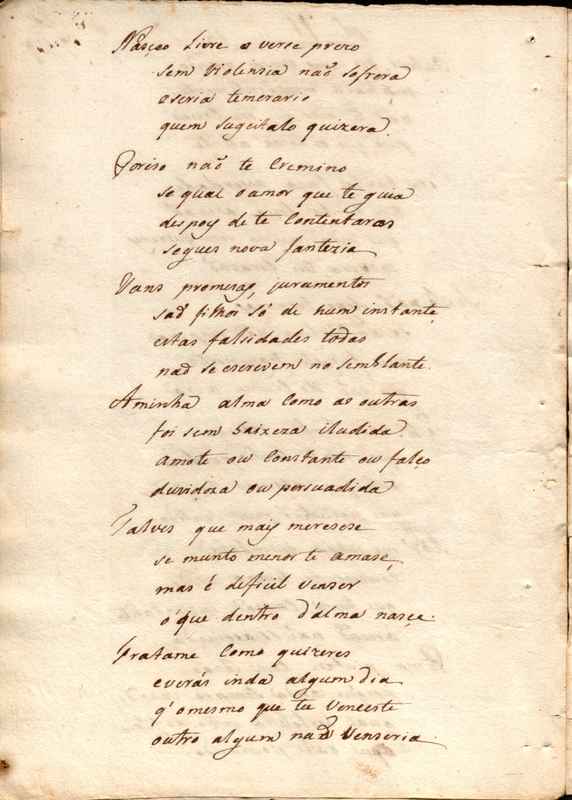 Nasceo Livre e verse prezo
sem violensia naõ sofrera
e seria temerario
quem sugeitalo quizera.
Poriso naõ te Cremino
se qual o amor que te guia
despoys de te Contentaras
segues nova fantezia
Vans promesas, juramentos
saõ filhos só de hum instante,
estas falsidades todas
naõ se escrevem no semblante.
Aminha alma Como as outras
foi sem baixeza iludida.
amote ou Constante ou falço
duvidoza ou persuadida
Talves que mais meresese
se munto menos te amase,
mas é deficil venser
o'que dentro d'alma nasçe.
Tratame Como quizeres
everás inda algum dia
q' o mesmo que tu venceste
outro algum naõ venseria.